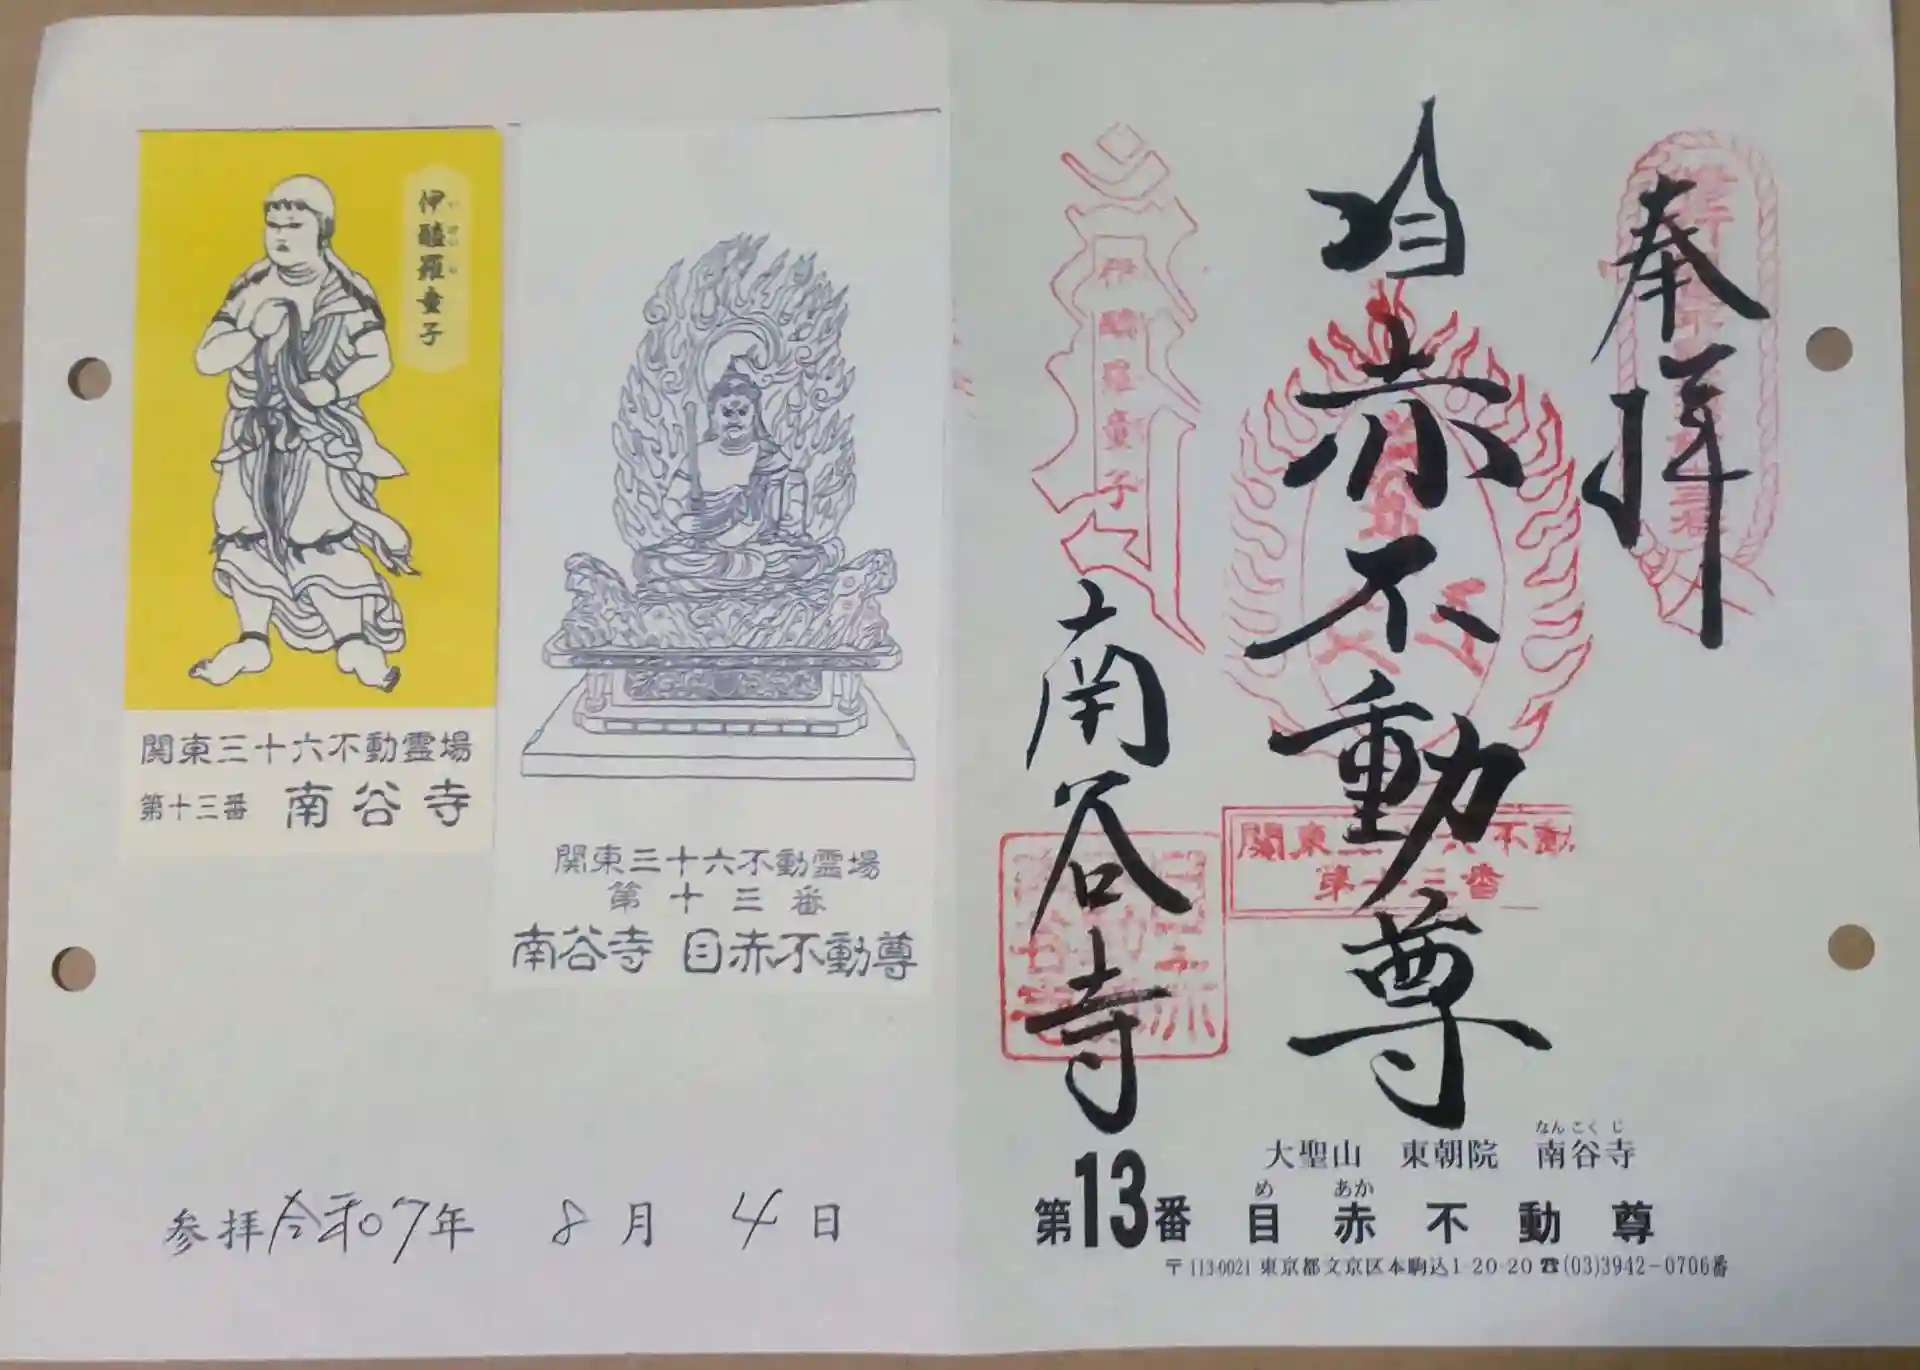 伊醯羅童子
いけいら
関東三十六不動霊場
第十三番 南谷寺
関東三十六不動霊場
第十三番
南谷寺 目赤不動尊
参拝令和7年 8月 4日
奉拝
目赤不動尊
南谷寺
伊醯羅童子
関東三十六不動
第十三番
なんこくじ
大聖山 東朝院 南谷寺
め あか
第13番 目赤不動尊
〒113-0021 東京都文京区本駒込1-20-20☎(03)3942-0706番